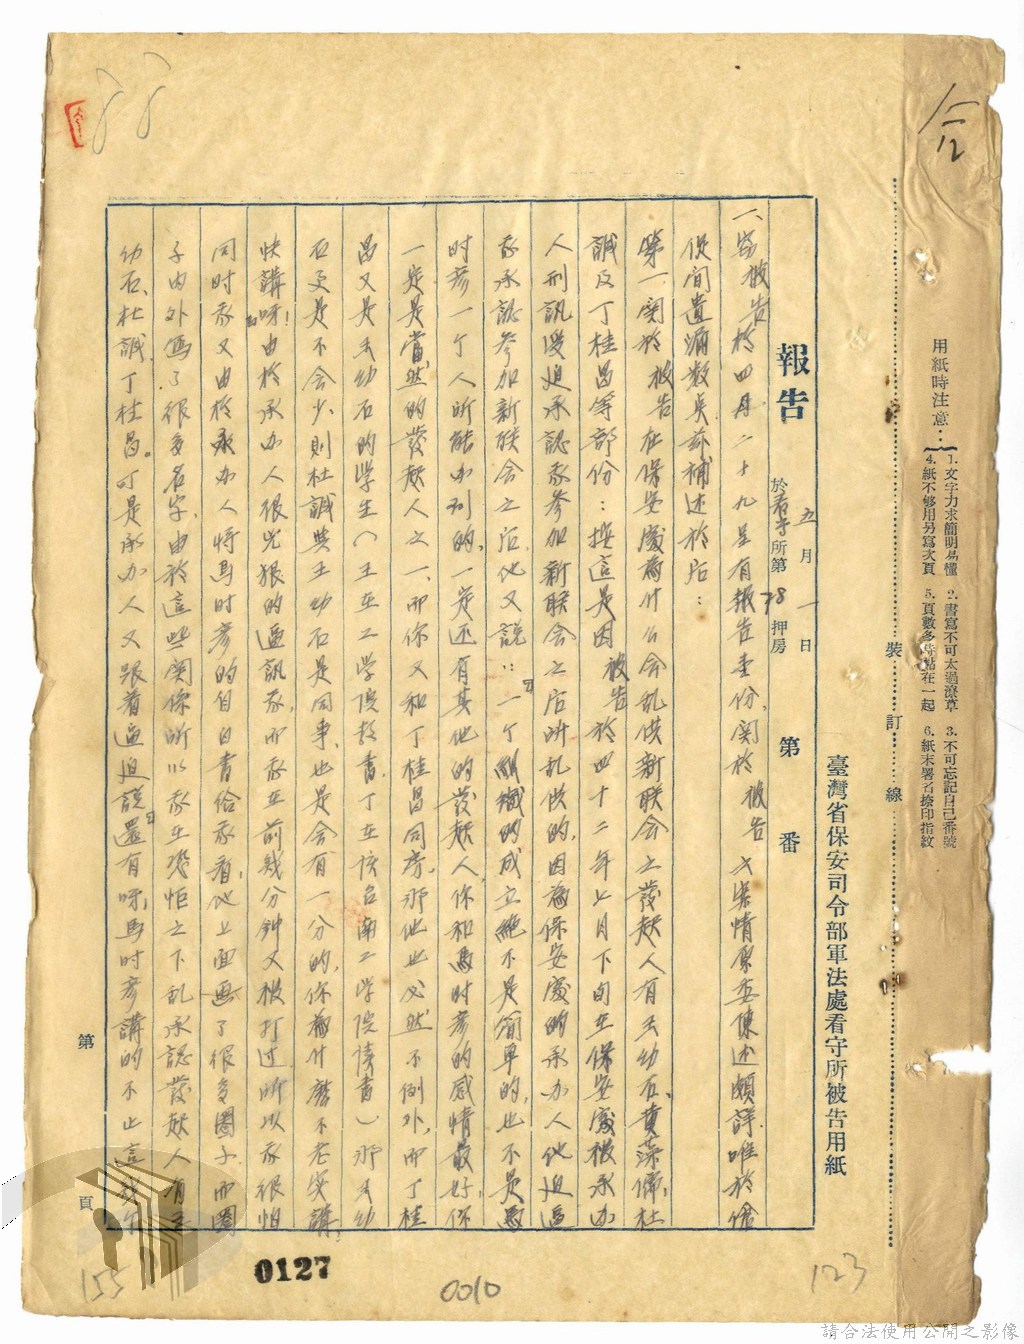 合
12
用紙時注意：
1. 文字力求簡明易懂 2. 書寫不可太過潦草 3. 不可忘記自己番號
4. 紙不够用另寫次頁 5. 頁數多時黏在一起 6. 紙末署名捺印指紋
裝訂線
臺灣省保安司令部軍法處看守所被告用紙
報告 五月一日 於看守所第38押房 第 番
一、竊被告於四月二十九呈有報告壹份，關於被告之案情原委陳述頗詳，唯於倉
促間遺漏數点茲補述於后：
第一、関於被告在保安處為什么会乱供新联会之發起人有王幼石、黄藻儒、杜
誠及丁桂昌等部份：按這是因被告於四十二年七月下旬在保安處被承办
人刑訊逼迫承認我参加新联会之后所乱供的，因為保安處的承办人他迫逼
我承認参加新联会之后，他又說：「一个組織的成立絶不是簡单的，也不是馮
时彦一个人所能办到的，一定还有其他的發起人，你和馮时彦的感情最好，你
一定是當然的發起人之一，而你又和丁桂昌同房，那他也必然不例外，而丁桂
昌又是王幼石的学生（王在工学院教書，丁在該台南工学院讀書）那王幼
石更是不会少，則杜誠与王幼石是同事，也是会有一分的，你為什麽不老实講，
快講呀！」由於承办人很光狠的逼訊我，而我在前幾分钟又被打过，所以我很怕
同时我又由於承办人将馬时彦的自白書给我看，他上面画了很多圈子，而圈
子内外写了很多名字，由於這些関係所以我在恐怕之下乱承認發起人有王
幼石、杜誠、丁桂昌。可是承办人又跟着逼迫說「還有呀，馬时彦講的不止這幾个
第 頁
155
0127
0010
123
請合法使用公開之影像